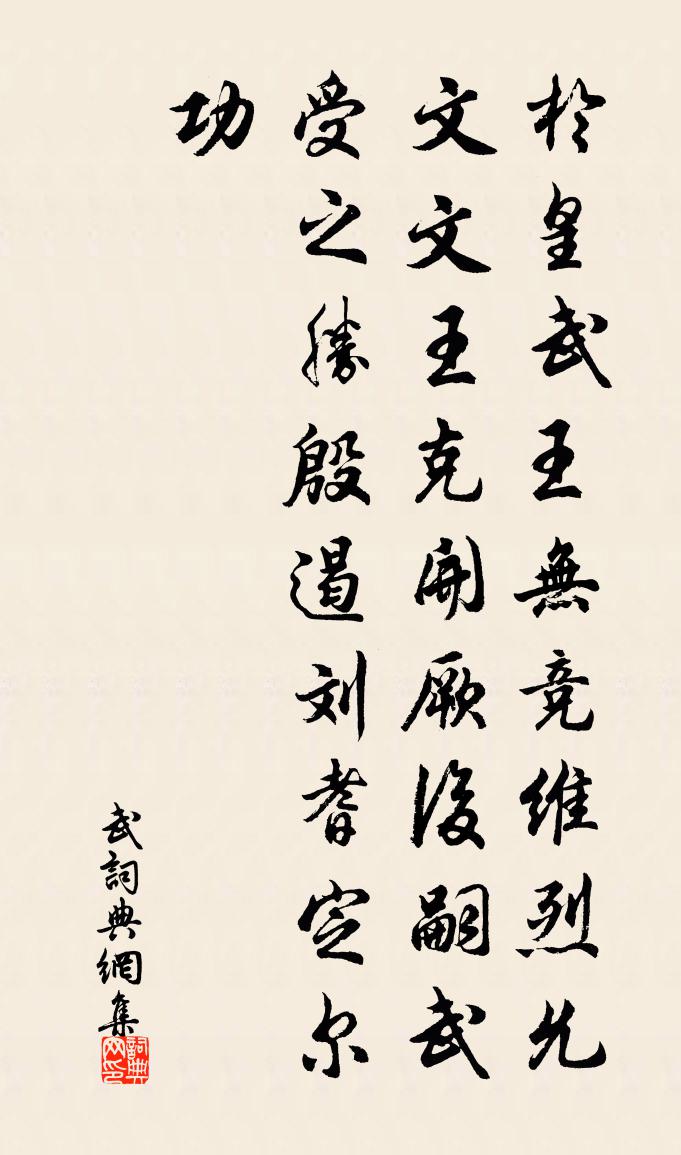 於皇武王無竞維烈允
文文王克開厥後嗣武
受之勝殷遏刘耆定尔
功
武詞典網集
詞典
网印